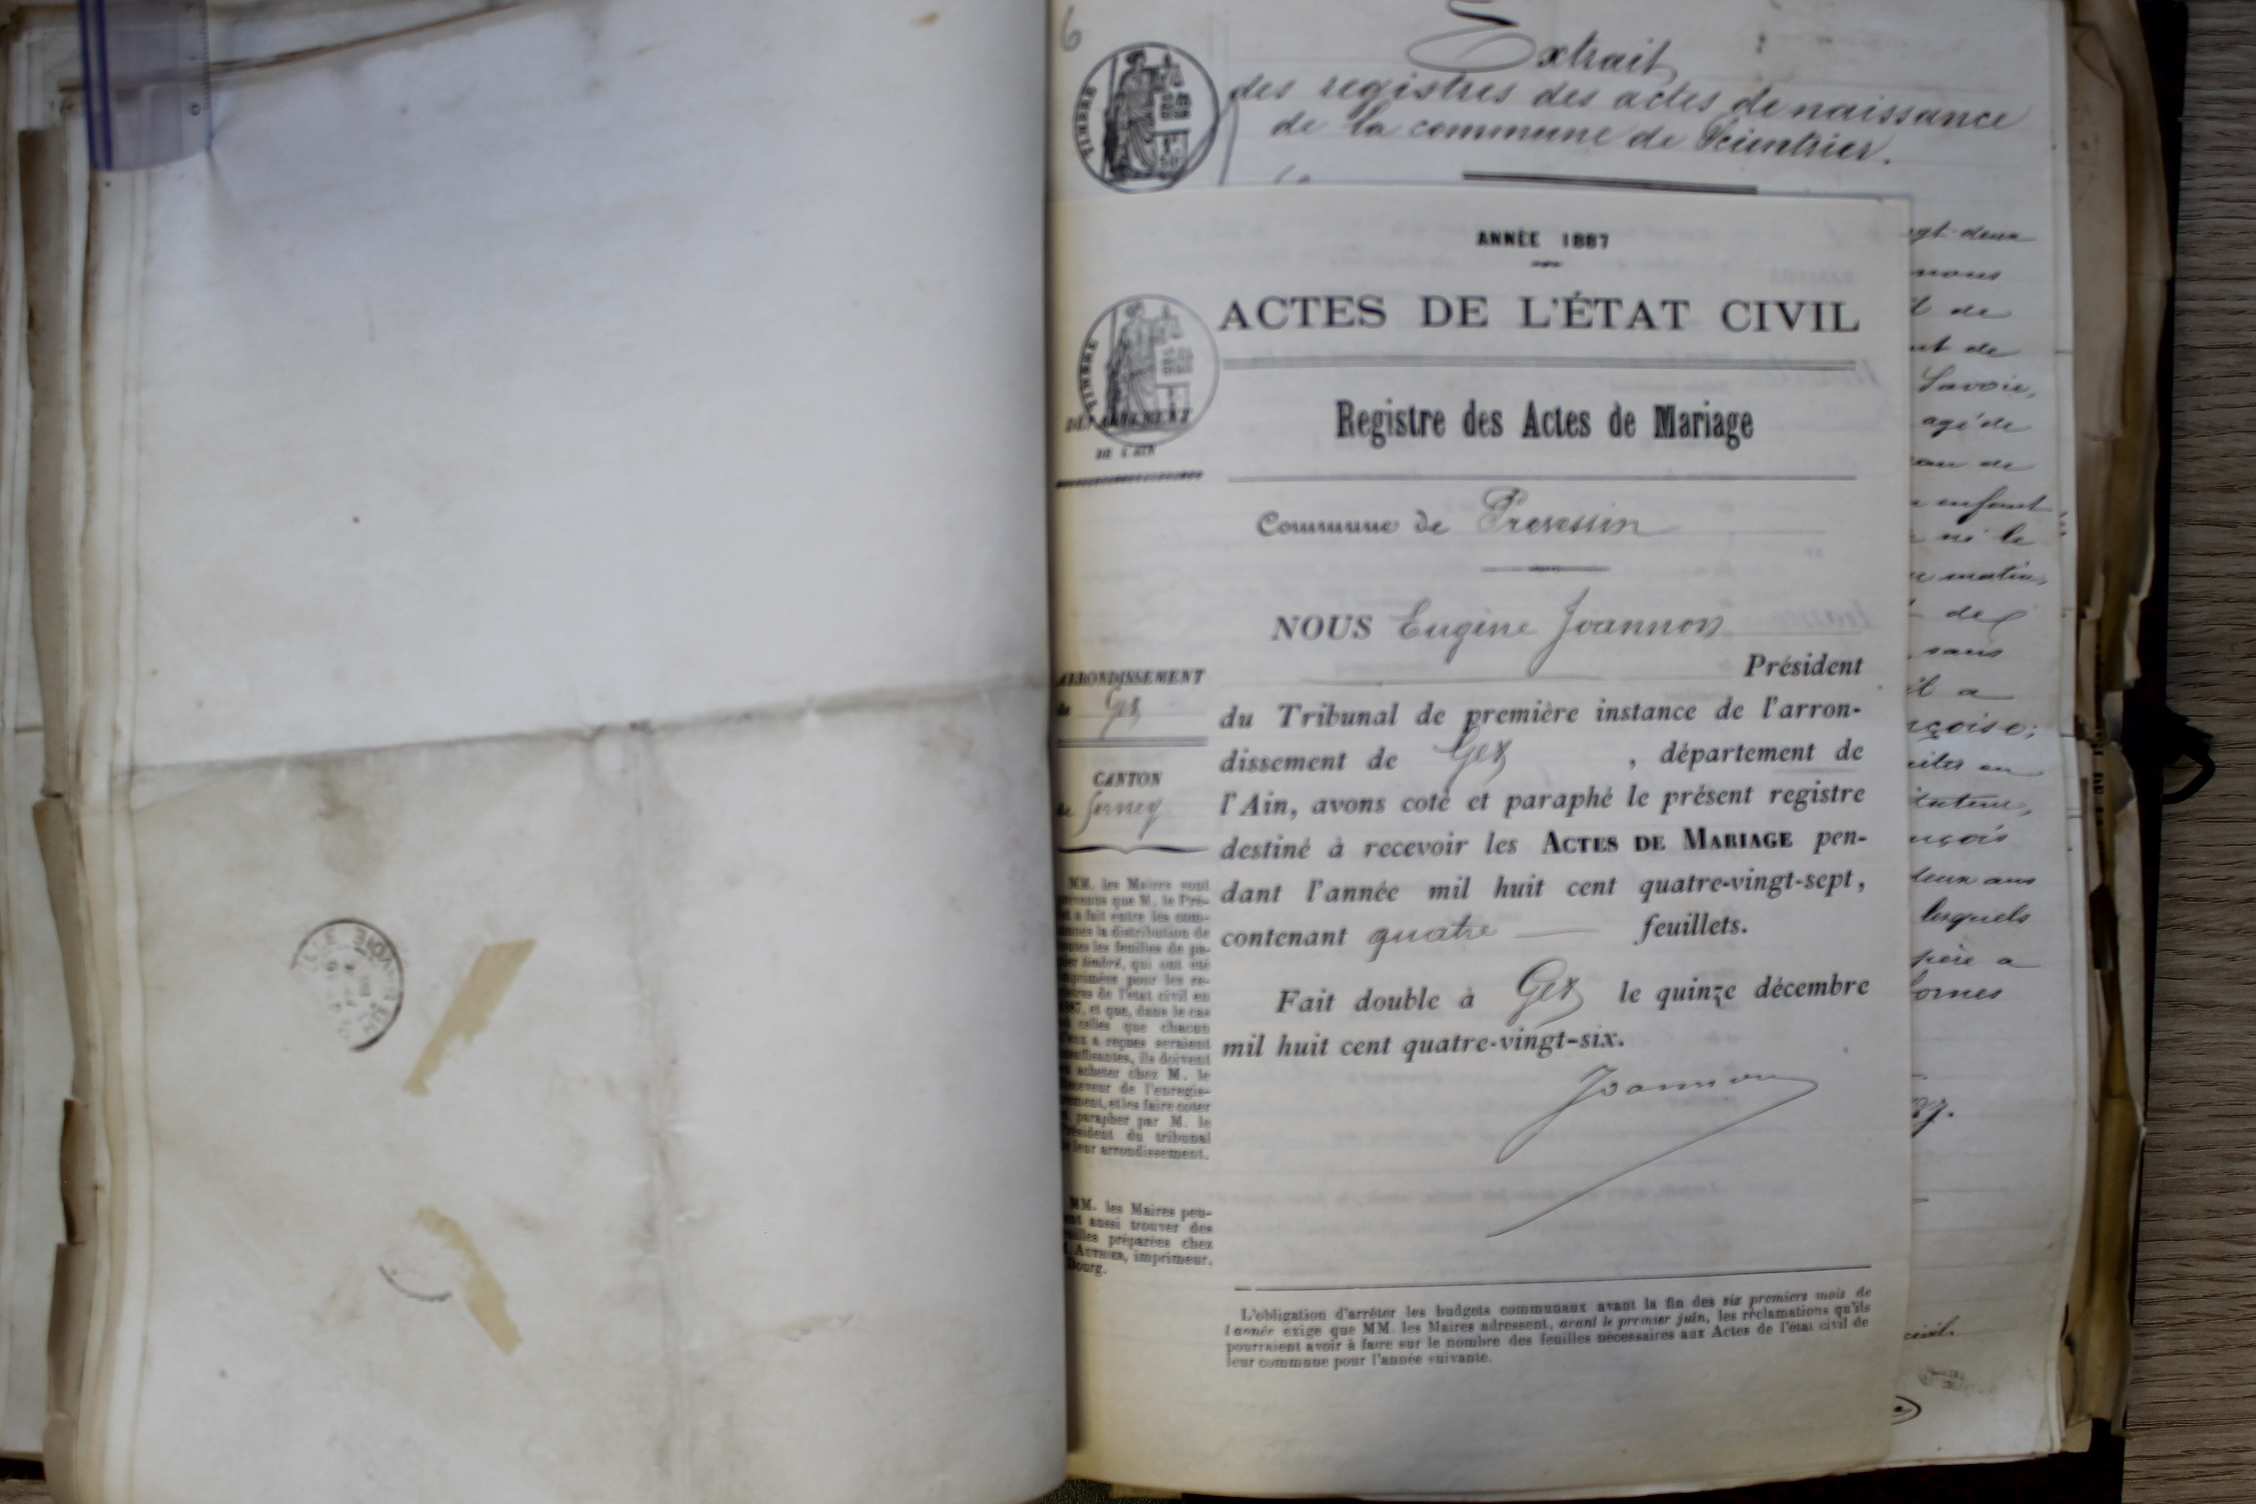 6
Extrait
des registres des actes de naissance
de la commune de Scientrier.
TIMBRE
ANNÉE 1887
ACTES DE L'ÉTAT CIVIL
TIMBRE
DÉPARTEMENT
DE L'AIN
Registre des Actes de Mariage
Commune de Prevessin
NOUS Eugène Joannon
Président
du Tribunal de première instance de l'arron-
dissement de Gex , département de
l'Ain, avons coté et paraphé le présent registre
destiné à recevoir les ACTES DE MARIAGE pen-
dant l'année mil huit cent quatre-vingt-sept,
contenant quatre feuillets.
Fait double à Gex le quinze décembre
mil huit cent quatre-vingt-six.
Joannon
L'obligation d'arrêter les budgets communaux avant la fin des six premiers mois de
l'année exige que MM. les Maires adressent, avant le premier juin, les réclamations qu'ils
pourraient avoir à faire sur le nombre des feuilles nécessaires aux Actes de l'état civil de
leur commune pour l'année suivante.
ARRONDISSEMENT
de Gex
CANTON
de Ferney
MM. les Maires sont
que M. le Pré-
a fait entre les com-
la distribution de
les feuilles de pa-
timbré, qui ont été
imprimées pour les re-
de l'état civil en
et que, dans le cas
celles que chacun
a reçues seraient
insuffisantes, ils doivent
acheter chez M. le
receveur de l'enregis-
et les faire coter
parapher par M. le
président du tribunal
leur arrondissement.
MM. les Maires peu-
aussi trouver des
préparées chez
AUTHIER, imprimeur,
Bourg.
deux
nous
de
de
Savoie,
agé de
de
enfant
ni le
matin,
de
sans
il a
en
deux ans
lesquels
père a
civil.